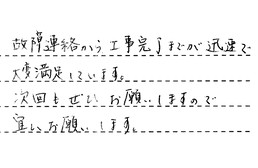 故障連絡から工事完了までが迅速で
大変満足しています。
次回もぜひお願いしますので
宜しくお願いします。